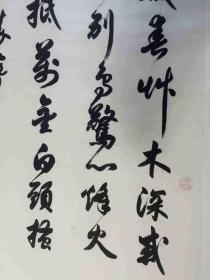 春草木深感
别鸟驚心烽火
抵萬金白頭搔